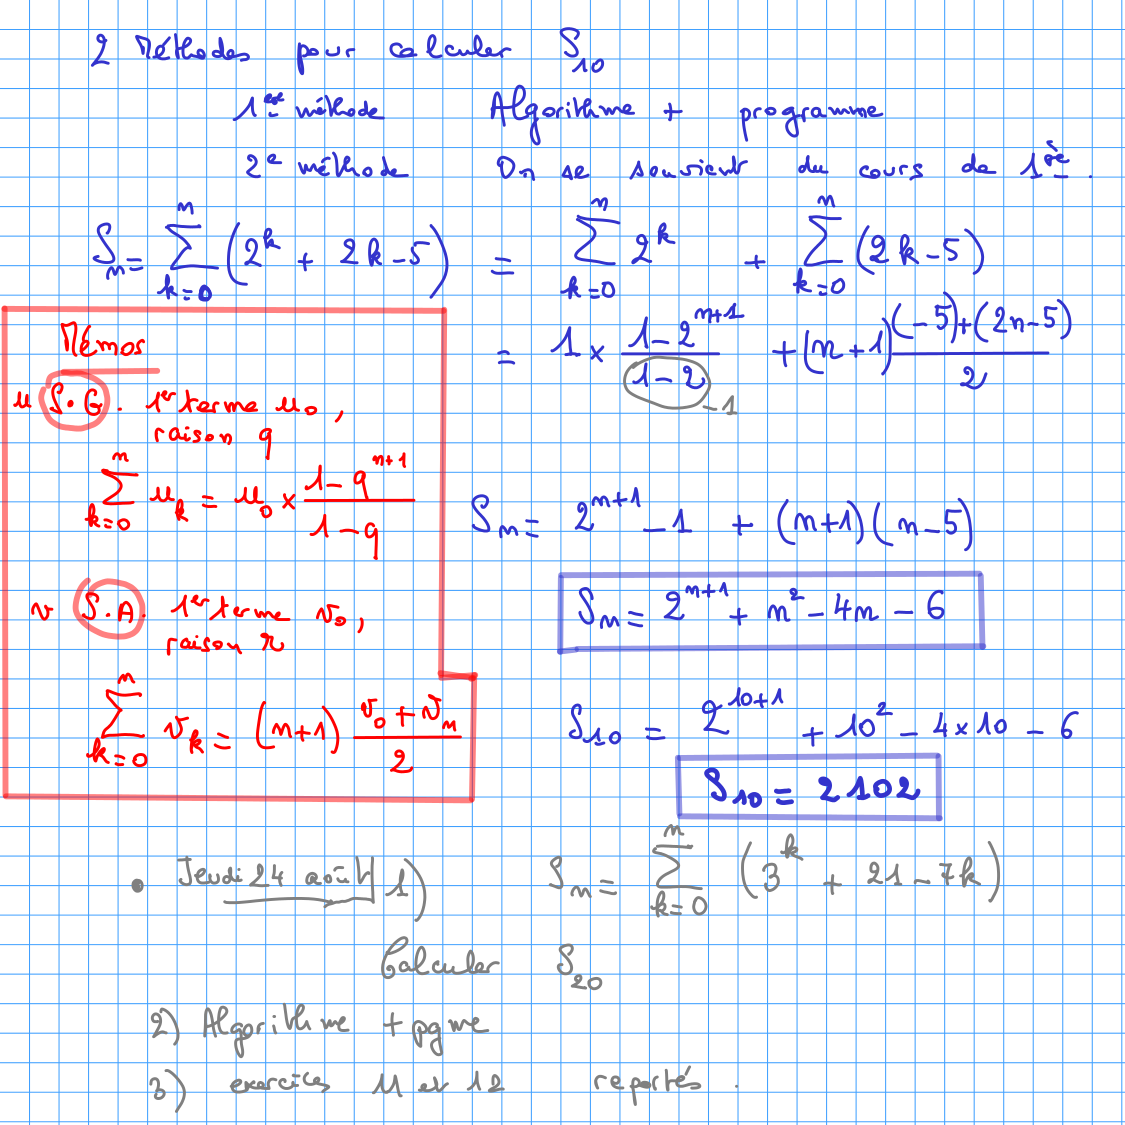 2 Méthodes pour calculer S₁₀
1ère méthode Algorithme + programme
2e méthode On se souvient du cours de 1ère.
Sₙ = ∑_{k=0}^{n} (2^k + 2k-5) = ∑_{k=0}^{n} 2^k + ∑_{k=0}^{n} (2k-5)
= 1 × (1-2^{n+1})/(1-2) + (n+1) ((-5)+(2n-5))/2
-1
Mémos
u S.G. 1er terme u₀,
raison q
∑_{k=0}^{n} u_k = u₀ × (1-q^{n+1})/(1-q)
Sₙ = 2^{n+1} - 1 + (n+1)(n-5)
v S.A. 1er terme v₀,
raison r
Sₙ = 2^{n+1} + n² - 4n - 6
∑_{k=0}^{n} v_k = (n+1) (v₀+vₙ)/2
S₁₀ = 2^{10+1} + 10² - 4×10 - 6
S₁₀ = 2102
• Jeudi 24 août 1) Sₙ = ∑_{k=0}^{n} (3^k + 21-7k)
Calculer S₂₀
2) Algorithme + pgme
3) exercices 11 et 12 reportés.